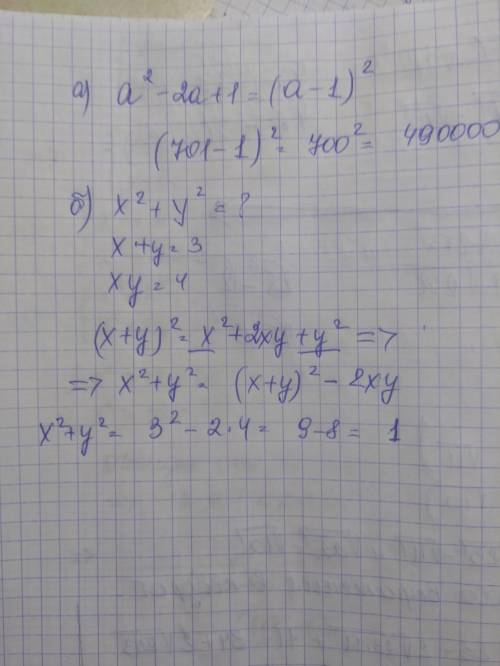 а) a² - 2a + 1 = (a - 1)²
(701 - 1)² = 700² = 490000
б) x² + y² = ?
x + y = 3
xy = 4
(x+y)² = x² + 2xy + y² =>
=> x² + y² = (x+y)² - 2xy
x² + y² = 3² - 2·4 = 9 - 8 = 1